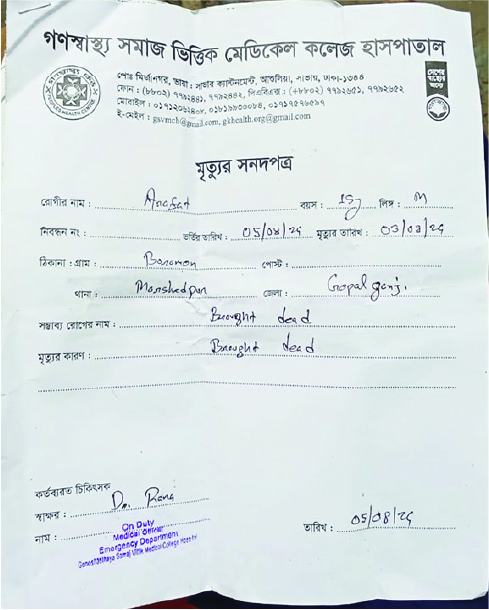 গণস্বাস্থ্য সমাজ ভিত্তিক মেডিকেল কলেজ হাসপাতাল
পোঃ মির্জানগর, ভায়া : সাভার ক্যান্টনমেন্ট, আশুলিয়া, সাভার, ঢাকা-১৩৪৪
ফোন : (৮৮০২) ৭৭৯২৪৪১, ৭৭৯২৪৪২, পিএবিএক্স : (+৮৮০২) ৭৭৯২৬৫১, ৭৭৯২৬৫২
মোবাইল :
ই-মেইল : gsvmch@gmail.com, gkhealth.org@gmail.com
মৃত্যুর সনদপত্র
রোগীর নাম : Arafat বয়স : লিঙ্গ : M
নিবন্ধন নং : ভর্তির তারিখ : 05/08/24 মৃত্যুর তারিখ :
ঠিকানা : গ্রাম : পোস্ট :
থানা : জেলা : Gopalganj.
সম্ভাব্য রোগের নাম : Brought dead
মৃত্যুর কারণ : Brought dead
কর্তব্যরত চিকিৎসক
স্বাক্ষর : Dr. Rana
নাম : On Duty
Medical Officer
Emergency Department
Gonoshasthaya Samaj Vittik Medical College Hospital
তারিখ : 05/08/24